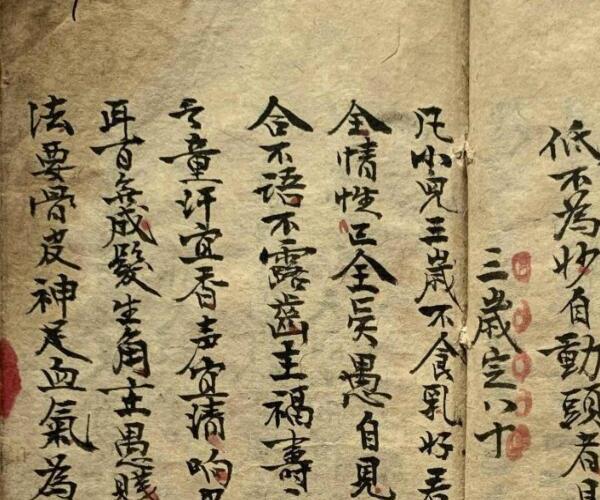 低不為妙自動頭者
三歲定八十
凡小兒三歲不食乳好
全情性已全賢愚自見
合不語不露齒主福壽
童汗宜香声宜清响
耳百無成髮生角主愚賤
法要骨皮神足血氣為